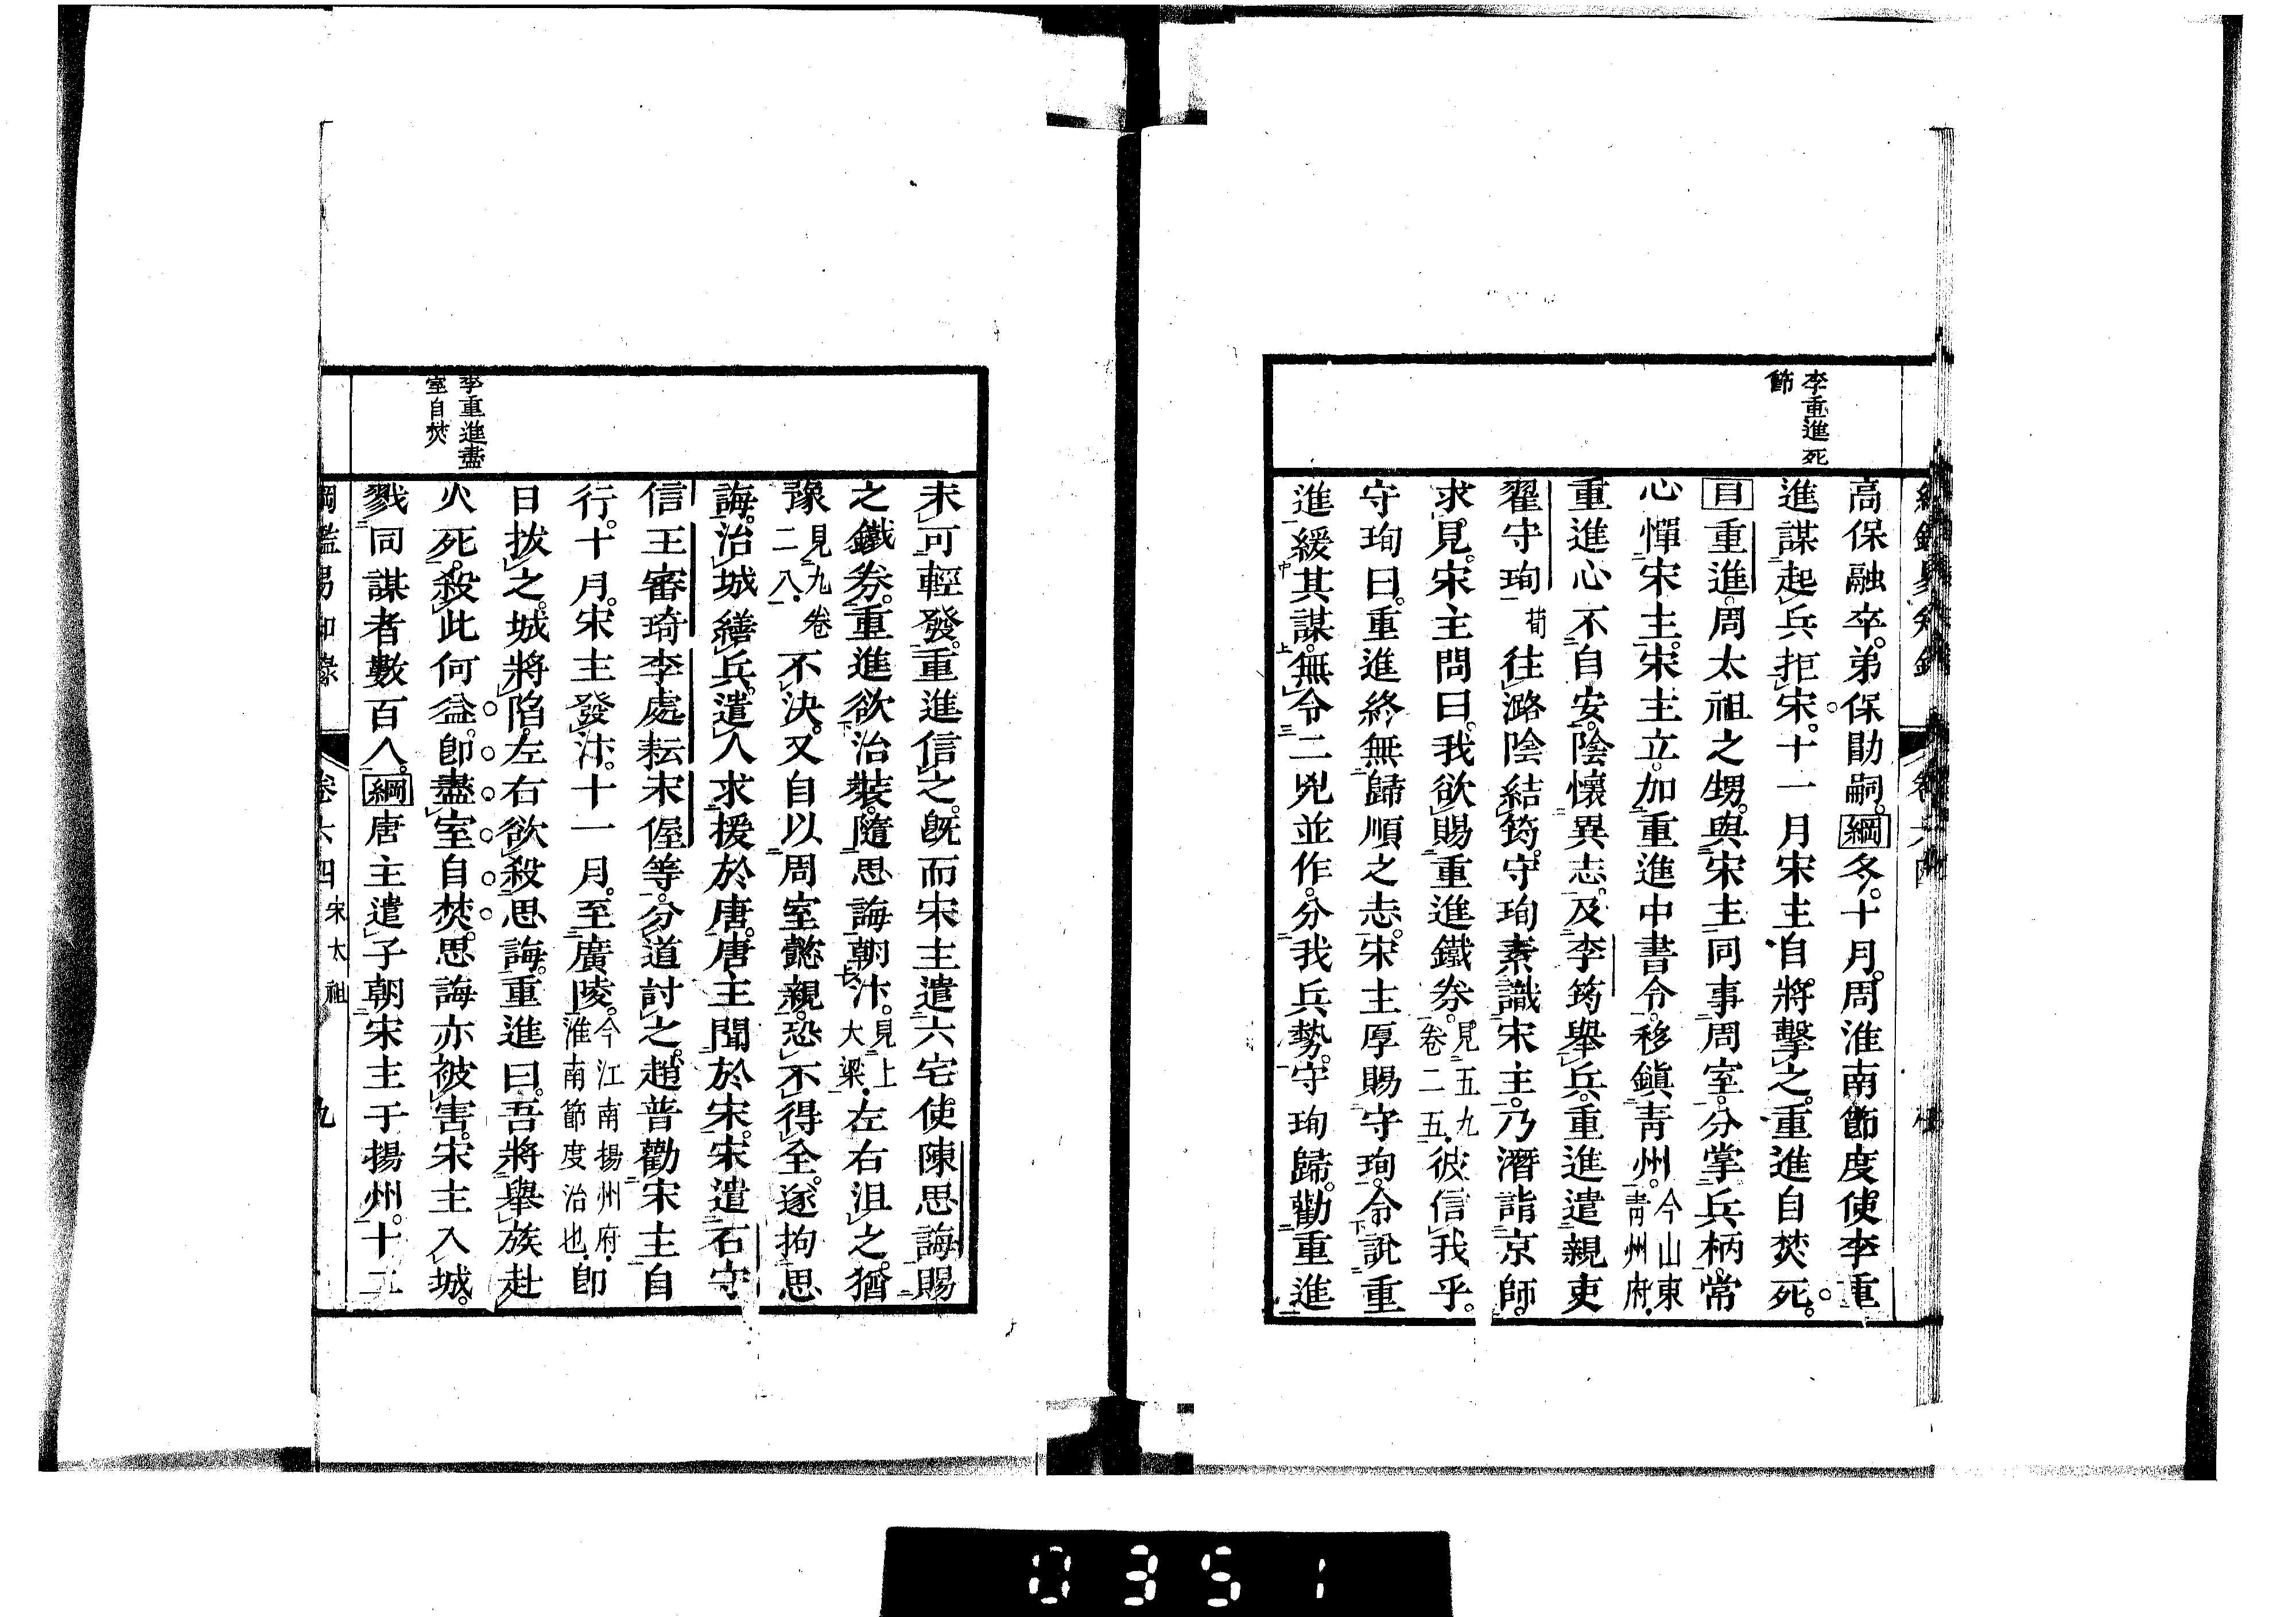 李重進死
節
高保融卒。弟保勖嗣。綱冬。十月。周淮南節度使李重
進謀起兵拒宋。十一月宋主自將擊之。重進自焚死。
目重進。周太祖之甥。與宋主同事周室。分掌兵柄。常
心憚宋主。宋主立。加重進中書令。移鎮青州。今山東青州府.
重進心不自安。陰懷異志。及李筠舉兵。重進遣親吏
翟守珣荀往潞陰結筠。守珣素識宋主。乃潛詣京師。
求見。宋主問曰。我欲賜重進鐵券。見五九卷二五五.彼信我乎。
守珣曰。重進終無歸順之志。宋主厚賜守珣。令訛重
進緩其謀。無令二兇並作。分我兵勢。守珣歸。勸重進
未可輕發。重進信之。既而宋主遣六宅使陳思誨賜
之鐵券。重進欲治裝。隨思誨朝汴。見上大梁.左右沮之。猶
豫見九卷二八.不決。又自以周室懿親。恐不得全。遂拘思
誨。治城繕兵。遣人求援於唐。唐主聞於宋。宋遣石守
信王審琦李處耘宋偓等。分道討之。趙普勸宋主自
行。十月。宋主發汴。十一月。至廣陵。今江南揚州府.淮南節度治也.即
日拔之。城將陷。左右欲殺思誨。重進曰。吾將舉族赴
火死。殺此何益。即盡室自焚。思誨亦被害。宋主入城。
戮同謀者數百人。綱唐主遣子朝宋主于揚州。十二
李重進盡
室自焚
綱鑑易知錄 卷六四 宋太祖 九
0351